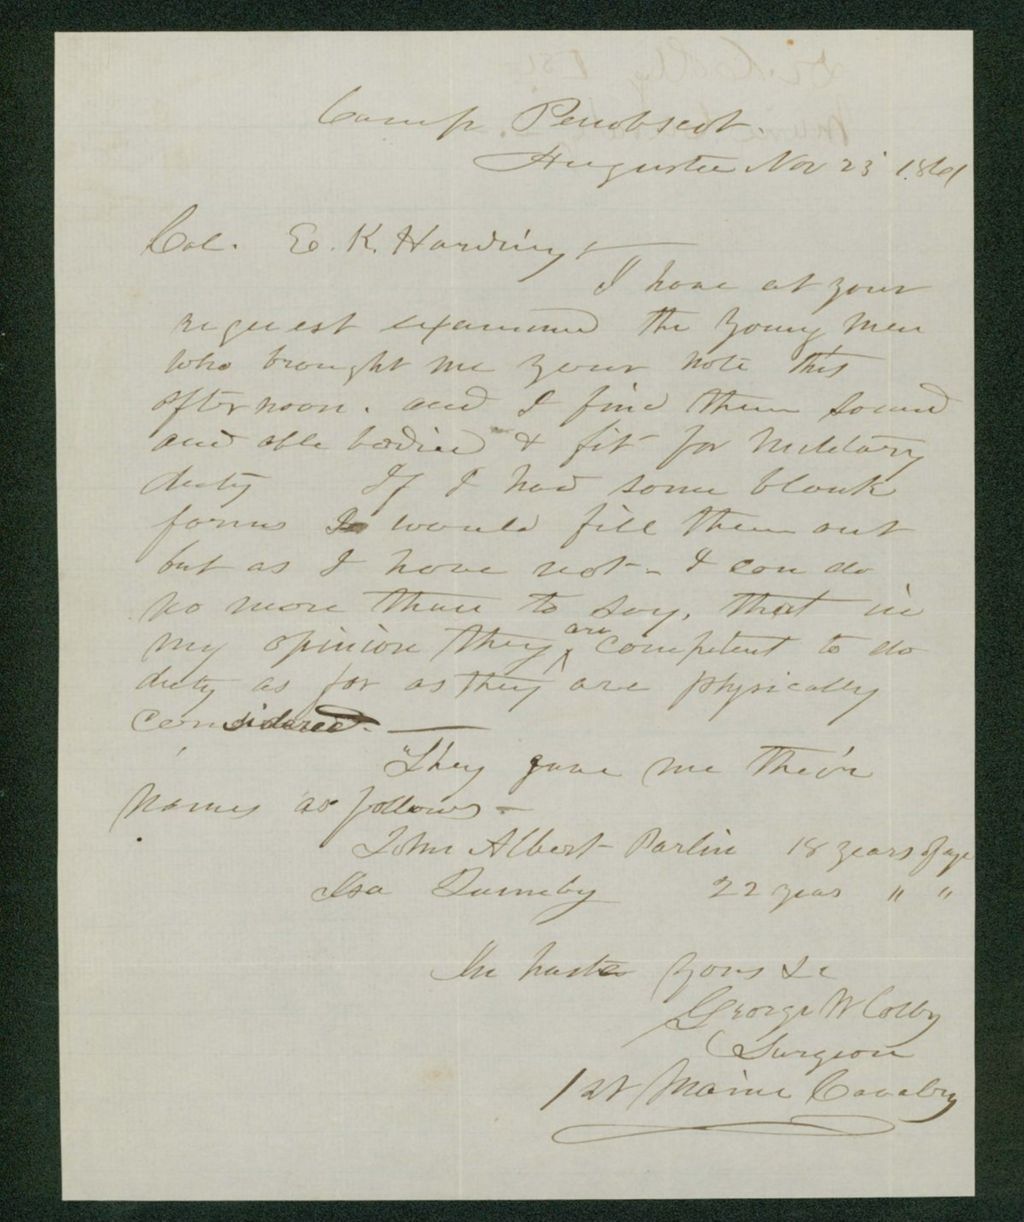 Camp Penobscot.
Augusta Nov 23 1861
Col. E. K. Harding,
I have at your
request examined the young men
who brought me your note this
afternoon. and I find them sound
and able bodied & fit for Military
duty If I had some blank
forms I would fill them out
but as I have not - I can do
no more than to say, that in
my opinion they are competent to do
duty as far as they are physically
considered. -
They gave me their
names as follows -
John Albert Parlin 18 years of age
Isa 22 years " "
In haste Yours &c
George W Colby
Surgeon
1st Maine Cavalry